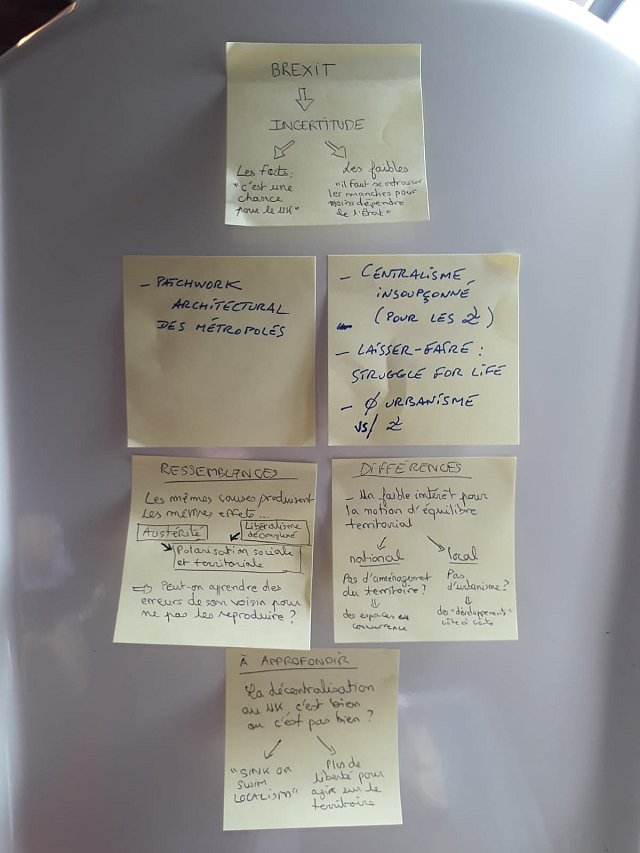 BREXIT
INCERTITUDE
Les forts :
"c'est une
chance
pour le UK"
Les faibles
"il faut se retrousser
les manches pour
moins dépendre
de l'État"
- PATCHWORK
ARCHITECTURAL
DES MÉTROPOLES
- CENTRALISME
INSOUPÇONNÉ
(POUR LES Z)
- LAISSER-FAIRE :
STRUGGLE FOR LIFE
- Ø URBANISME
VS/ Z
RESSEMBLANCES
Les mêmes causes produisent
les mêmes effets...
AUSTÉRITÉ
Libéralisme
décomplexé
Polarisation sociale
et territoriale
⇒ Peut-on apprendre des
erreurs de son voisin pour
ne pas les reproduire ?
DIFFÉRENCES
- Un faible intérêt pour
la notion d'équilibre
territorial
national
Pas d'aménagement
du territoire ?
des espaces en
concurrence
local
Pas
d'urbanisme ?
des "développements"
côte à côte
À APPROFONDIR
La décentralisation
au UK c'est bien
ou c'est pas bien ?
"SINK OR
SWIM
LOCALISM"
Plus de
liberté pour
agir sur le
territoire